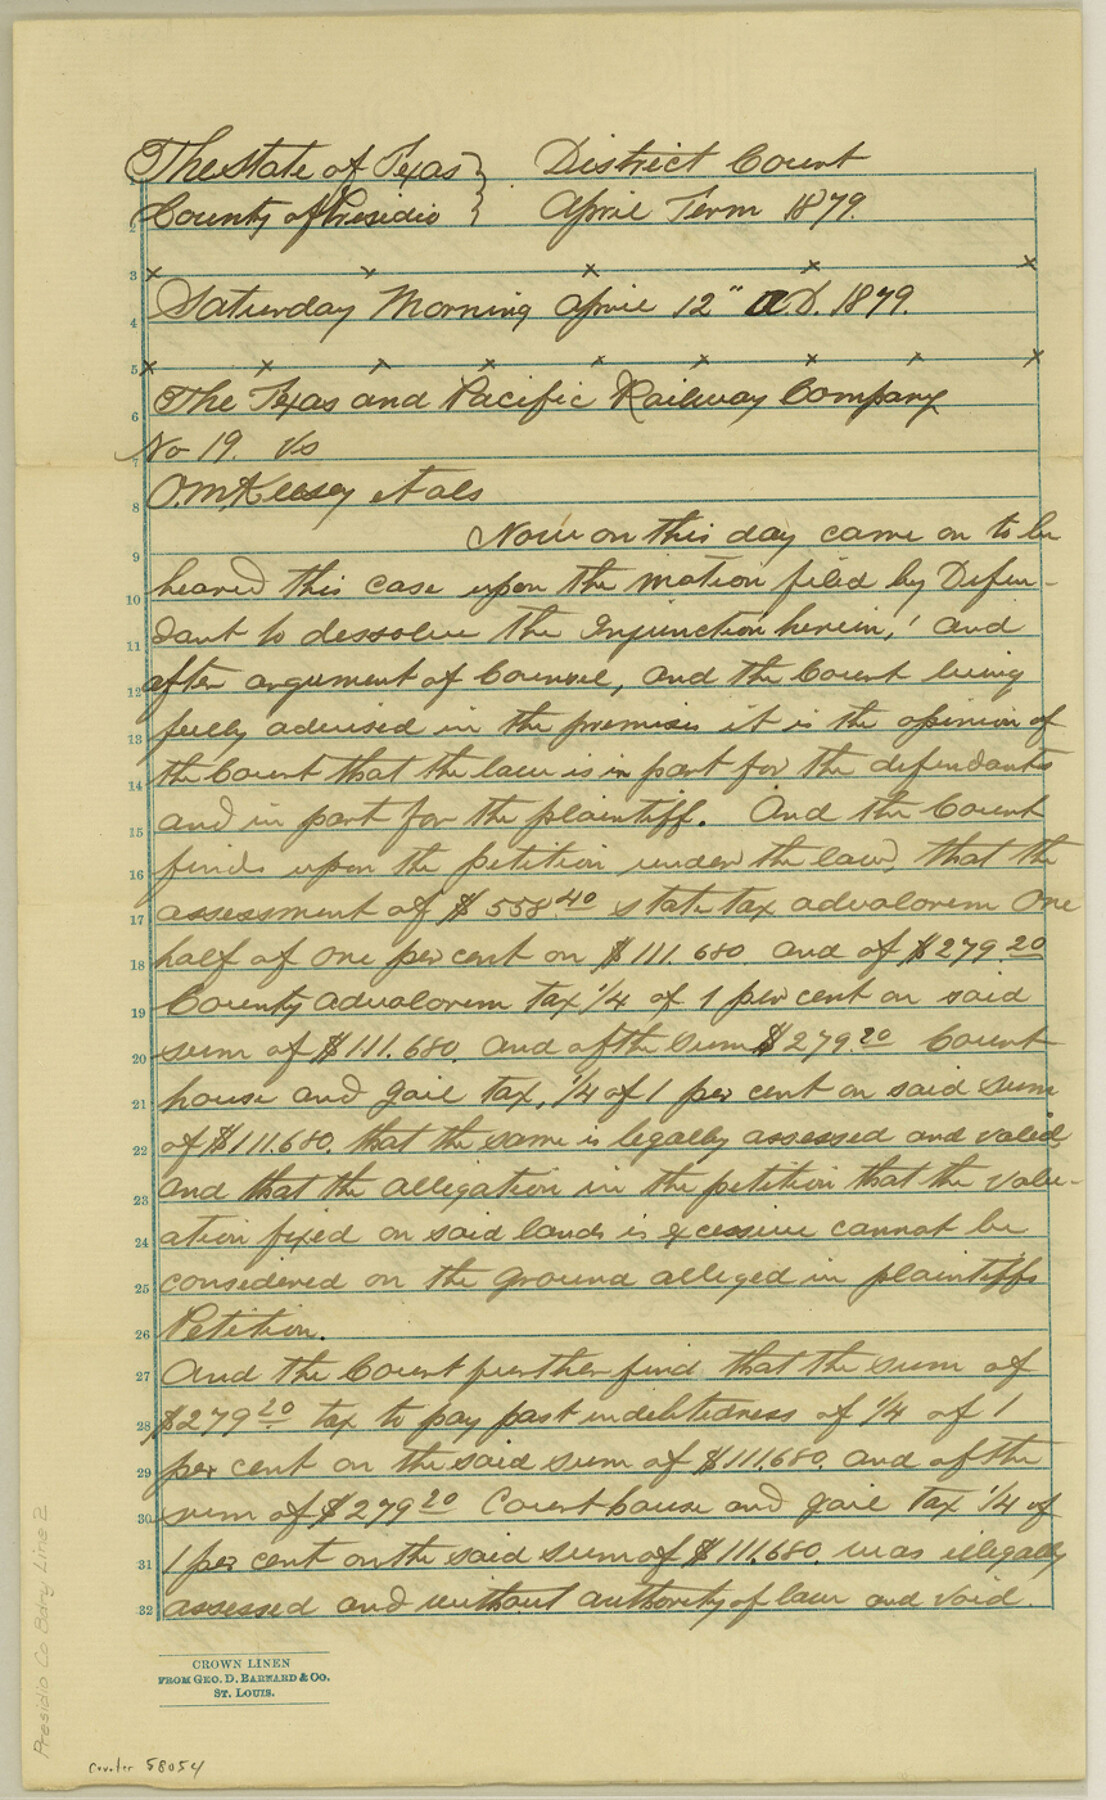 The State of Texas } District Court
County of Presidio } April Term 1879.
x x x x x
Saturday Morning April 12" A.D. 1879.
x x x x x x x x x
The Texas and Pacific Railway Company
No 19. Vs
O.M. Keesey et als
Now on this day came on to be
heard this case upon the motion filed by Defen-
dant to dessolve the Injunction herein, and
after argument of Counsel, and the Court being
fully advised in the premises it is the opinion of
the Court that the law is in part for the defendants
and in part for the plaintiff. And the Court
finds upon the petition under the law, that the
assessment of $558.40 state tax advalorem One
half of one per cent on $111.680. and of $279.20
County advalorem tax 1/4 of 1 per cent on said
sum of $111.680. and of the sum $279.20 Court
house and gail tax, 1/4 of 1 per cent on said sum
of $111.680. that the same is legally assessed and valid,
and that the allegation in the petition that the valu-
ation fixed on said lands is excessive cannot be
considered on the ground alleged in plaintiffs
Petition.
And the Court further find that the sum of
$279.20 tax to pay past indebtedness of 1/4 of 1
per cent on the said sum of $111.680. and of the
sum of $279.20 Court house and gail tax 1/4 of
1 per cent on the said sum of $111.680. was illegally
assessed and without authority of law and void.
1
2
3
4
5
6
7
8
9
10
11
12
13
14
15
16
17
18
19
20
21
22
23
24
25
26
27
28
29
30
31
32
CROWN LINEN
FROM GEO. D. BARNARD & CO.
ST. LOUIS.
Presidio Co Bdry Line 2
Counter 58054